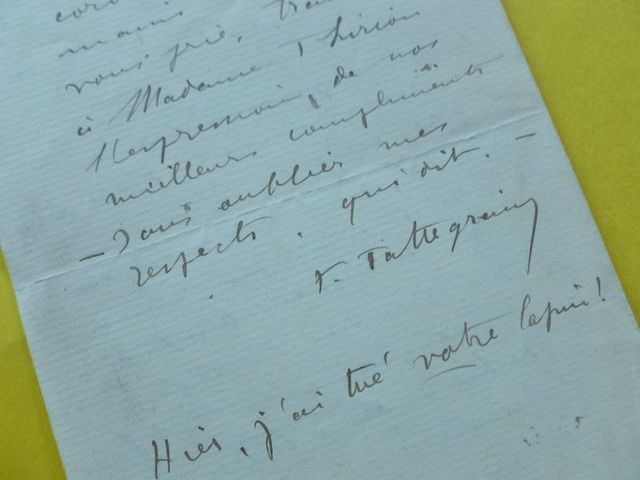 mains
vous prie,
à Madame Thirion
l'expression, de nos
meilleurs compliments
– Sans oublier mes
respects. qu'il dit. –
F. Tattegrain
Hier, j'ai tué votre lapin!